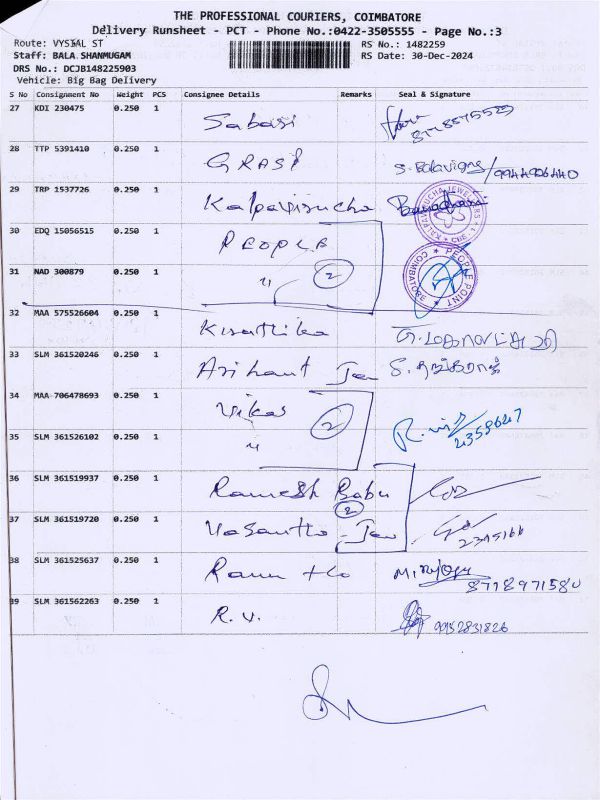 THE PROFESSIONAL COURIERS, COIMBATORE
Delivery Runsheet - PCT - Phone No.:0422-3505555 - Page No.:3
Route: VYSIAL ST
RS No.: 1482259
Staff: BALA.SHANMUGAM
RS Date: 30-Dec-2024
DRS No.: DCJB148225903
Vehicle: Big Bag Delivery
S No Consignment No Weight PCS Consignee Details Remarks Seal & Signature
27 KDI 230475 0.250 1 Sabasi
28 TTP 5391410 0.250 1 GRASP 9944906440
29 TRP 1537726 0.250 1
30 EDQ 15056515 0.250 1 PEOPLE
31 NAD 300879 0.250 1 " 2
COIMBATORE PEOPLE POINT
32 MAA 575526604 0.250 1 Kiruthika
33 SLM 361520246 0.250 1 Arihant Jew
34 MAA 706478693 0.250 1 Vikas 2
35 SLM 361526102 0.250 1 "
36 SLM 361519937 0.250 1 Ramesh Babu 2
37 SLM 361519720 0.250 1 Vasantha Jew
38 SLM 361525637 0.250 1 8778971580
39 SLM 361562263 0.250 1 R.V. 9952831826